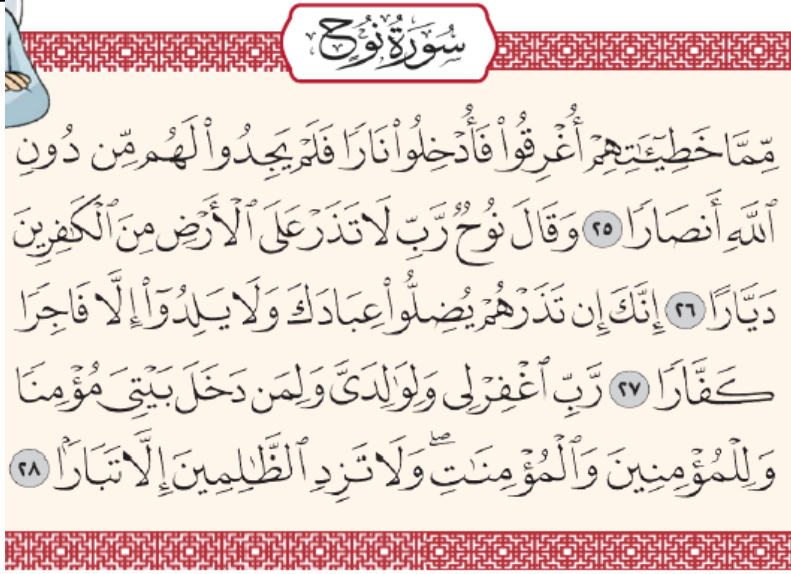 سُورَةُ نُوحٍ
مِّمَّا خَطِيٓـَٰٔتِهِمْ أُغْرِقُوا۟ فَأُدْخِلُوا۟ نَارًا فَلَمْ يَجِدُوا۟ لَهُم مِّن دُونِ
ٱللَّهِ أَنصَارًا ٢٥ وَقَالَ نُوحٌ رَّبِّ لَا تَذَرْ عَلَى ٱلْأَرْضِ مِنَ ٱلْكَٰفِرِينَ
دَيَّارًا ٢٦ إِنَّكَ إِن تَذَرْهُمْ يُضِلُّوا۟ عِبَادَكَ وَلَا يَلِدُوٓا۟ إِلَّا فَاجِرًا
كَفَّارًا ٢٧ رَّبِّ ٱغْفِرْ لِى وَلِوَٰلِدَىَّ وَلِمَن دَخَلَ بَيْتِىَ مُؤْمِنًا
وَلِلْمُؤْمِنِينَ وَٱلْمُؤْمِنَٰتِۖ وَلَا تَزِدِ ٱلظَّٰلِمِينَ إِلَّا تَبَارًۢا ٢٨